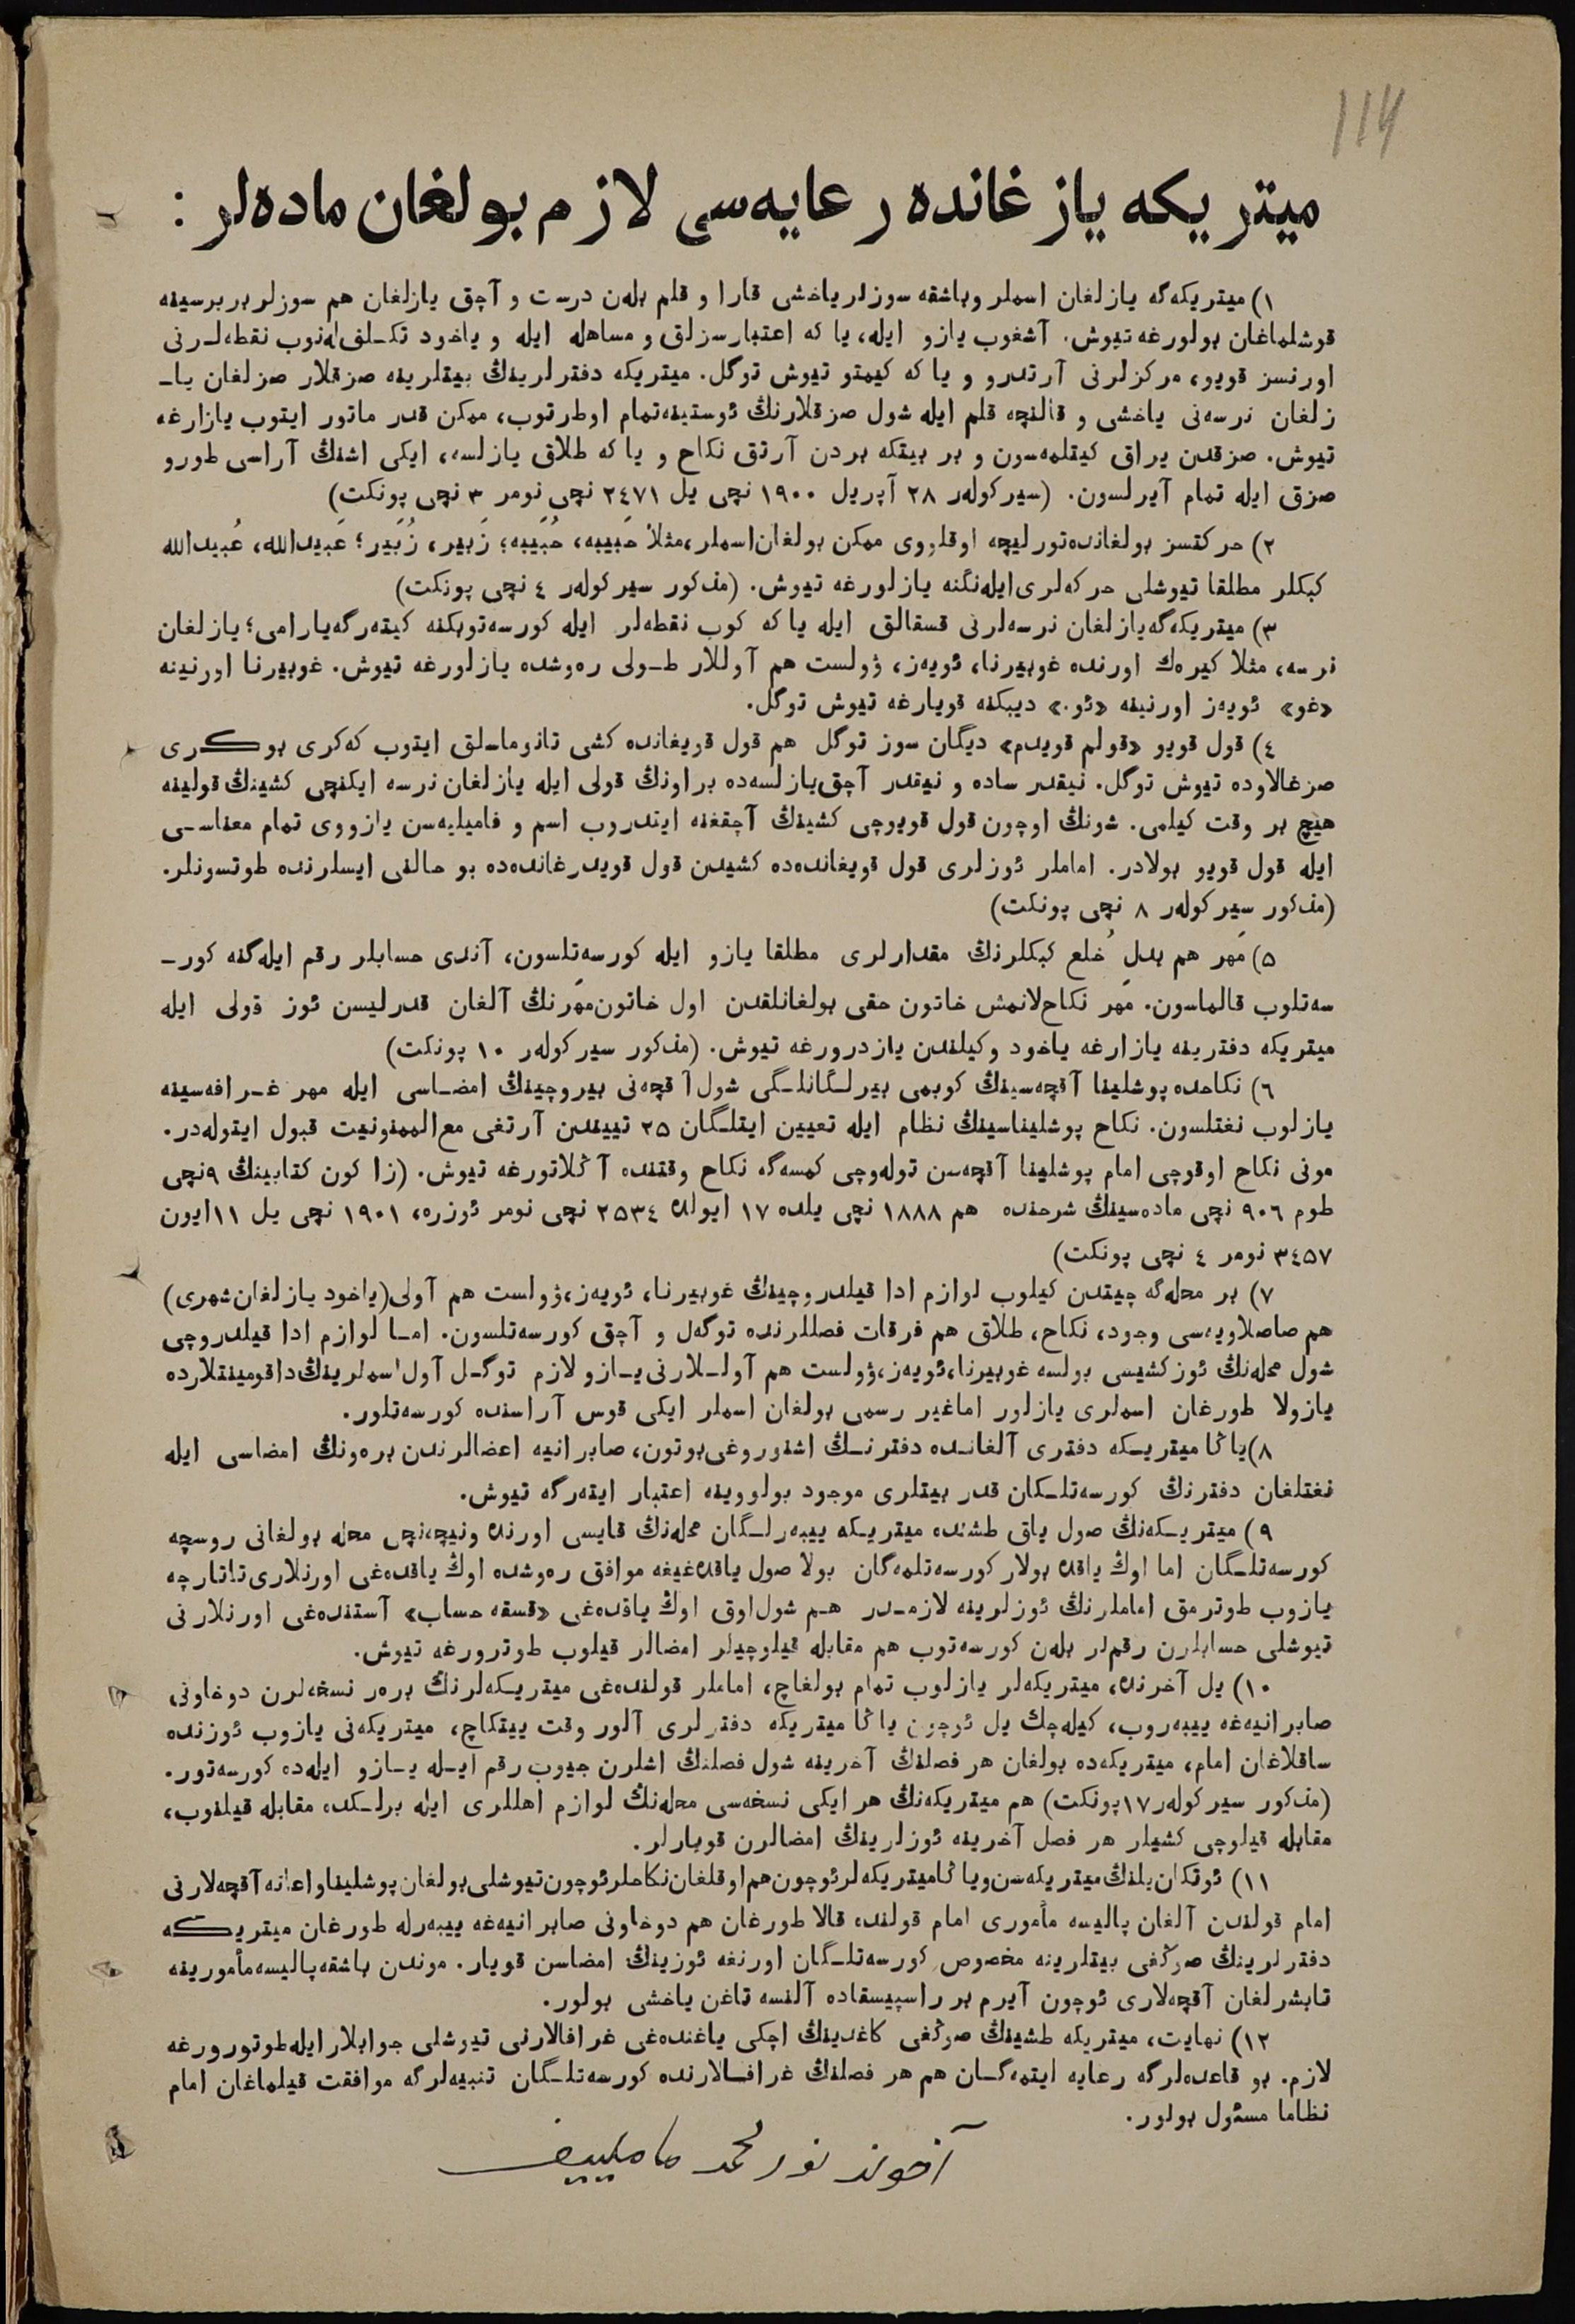 114
میتریکه یازغانده رعایه‌سی لازم بولغان ماده‌لر :
١) میتریکه‌گه یازلغان اسملر وباشقه سوزلر یاخشی قارا و قلم بله‌ن درست و آچق یازلغان هم سوزلر بربرسینه
قوشلماغان بولورغه تیوش. آشغوب یازو ایله، یا که اعتبارسزلق و مساهله ایله و یاخود تکلف‌له‌نوب نقطه‌لرنی
اورنسز قویو، مرکزلرنی آرتدرو و یا که کیمتو تیوش توگل. میتریکه دفترلرینڭ بیتلرینه صزقلار صزلغان یا-
زلغان نرسه‌نی یاخشی و قالنچه قلم ایله شول صزقلارنڭ ئوستینه‌تمام اوطرتوب، ممکن قدر ماتور ایتوب یازارغه
تیوش. صزقدن یراق کیتلمه‌سون و بر بیتکه بردن آرتق نکاح و یا که طلاق یازلسه، ایکی اشنڭ آراسی طورو
صزق ایله تمام آیرلسون. (سیرکوله‌ر ٢٨ آپریل ١٩٠٠ نچی یل ٢٤٧١ نچی نومر ٣ نچی پونکت)
٢) حرکتسز بولغانده‌تورلیچه اوقلووی ممکن بولغان‌اسملر،مثلاً حَبیبه، حُبَیبه؛ زَبیر، زُبَیر؛ عَبیدالله، عُبیدالله
کبکلر مطلقا تیوشلی حرکه‌لری‌ایله‌نگنه یازلورغه تیوش. (مذکور سیرکوله‌ر ٤ نچی پونکت)
٣) میتریکه‌گه‌یازلغان نرسه‌لرنی قسقالق ایله یا که کوب نقطه‌لر ایله کورسه‌توبکنه کیته‌رگه‌یارامی؛ یازلغان
نرسه، مثلا کیره‌ك اورنده غوبیرنا، ئویه‌ز، ۋولست هم آوللار طولی ره‌وشده یازلورغه تیوش. غوبیرنا اورنینه
«غو» ئویه‌ز اورنینه «ئو.» دیبکنه قویارغه تیوش توگل.
٤) قول قویو «قولم قویدم» دیگان سوز توگل هم قول قویغانده کشی تانوماسلق ایتوب که‌کری بوکری
صزغالاوده تیوش توگل. نیقدر ساده و نیقدر آچق‌یازلسه‌ده براونڭ قولی ایله یازلغان نرسه ایکنچی کشینڭ قولینه
هیچ بر وقت کیلمی. شونڭ اوچون قول قویوچی کشینڭ آچقغنه ایتدروب اسم و فامیلیه‌سن یازووی تمام معناسی
ایله قول قویو بولادر. اماملر ئوزلری قول قویغانده‌ده کشیدن قول قویدرغانده‌ده بو حالنی ایسلرنده طوتسونلر.
(مذکور سیرکوله‌ر ٨ نچی پونکت)
٥) مَهر هم بدل خُلع کبکلرنڭ مقدارلری مطلقا یازو ایله کورسه‌تلسون، آندی حسابلر رقم ایله‌گنه کور-
سه‌تلوب قالماسون. مَهر نکاح‌لانمش خاتون حقی بولغانلقدن اول خاتون‌مَهرنڭ آلغان قدرلیسن ئوز قولی ایله
میتریکه دفترینه یازارغه یاخود وکیلندن یازدرورغه تیوش. (مذکور سیرکوله‌ر ١٠ پونکت)
٦) نکاحده پوشلینا آقچه‌سینڭ کوبمی بیرلگانلگی شول آقچه‌نی بیروچینڭ امضاسی ایله مهر غرافه‌سینه
یازلوب نغتلسون. نکاح پوشلیناسینڭ نظام ایله تعیین ایتلگان ٢٥ تییندن آرتغی مع‌الممنونیت قبول ایتوله‌در.
مونی نکاح اوقوچی امام پوشلینا آقچه‌سن توله‌وچی کمسه‌گه نکاح وقتنده آڭلاتورغه تیوش. (زاکون کتابینڭ ٩نچی
طوم ٩٠٦ نچی ماده‌سینڭ شرحنده هم ١٨٨٨ نچی یلده ١٧ ایولده ٢٥٣٤ نچی نومر ئوزره، ١٩٠١ نچی یل ١١ایون
٣٤٥٧ نومر ٤ نچی پونکت)
٧) بر محله‌گه چیتدن کیلوب لوازم ادا قیلدروچینڭ غوبیرنا، ئویه‌ز،ۋولست هم آولی(یاخود یازلغان‌شهری)
هم صاصلاویه‌سی وجود، نکاح، طلاق هم فرقات فصللرنده توگه‌ل و آچق کورسه‌تلسون. اما لوازم ادا قیلدروچی
شول محله‌نڭ ئوزکشیسی بولسه غوبیرنا،ئویه‌ز،ۋولست هم آوللارنی یازو لازم توگل آول‌اسملرینڭ‌داقومینتلارده
یازولا طورغان اسملری یازلور اماغیر رسمی بولغان اسملر ایکی قوس آراسنده کورسه‌تلور.
٨)یاڭا میتریکه دفتری آلغانده دفترنڭ اشنوروغی‌بوتون، صابرانیه اعضالرندن بره‌ونڭ امضاسی ایله
نغتلغان دفترنڭ کورسه‌تلگان قدر بیتلری موجود بولووینه اعتبار ایته‌رگه تیوش.
٩) میتریکه‌نڭ صول یاق طشنده میتریکه ییبه‌رلگان محله‌نڭ قایسی اورنده ونیچه‌نچی محله بولغانی روسچه
کورسه‌تلگان اما اوڭ یاقده بولار کورسه‌تلمه‌گان بولا صول یاقده‌غیغه موافق ره‌وشده اوڭ یاقده‌غی اورنلاری تاتارچه
یازوب طوترمق اماملرنڭ ئوزلرینه لازمدر هم شول‌اوق اوڭ یاقده‌غی «قسقه حساب» آستنده‌غی اورنلارنی
تیوشلی حسابلرن رقم‌لر بله‌ن کورسه‌توب هم مقابله قیلوچیلر امضالر قیلوب طوترورغه تیوش.
١٠) یل آخرنده میتریکه‌لر یازلوب تمام بولغاچ، اماملر قولنده‌غی میتریکه‌لرنڭ بره‌ر نسخه‌لرن دوخاونی
صابرانیه‌غه ییبه‌روب، کیله‌چك یل ئوچون یاڭا میتریکه دفترلری آلور وقت ییتکاچ، میتریکه‌نی یازوب ئوزنده
ساقلاغان امام، میتریکه‌ده بولغان هر فصلنڭ آخرینه شول فصلنڭ اشلرن جیوب رقم ایله یازو ایله‌ده کورسه‌تور.
(مذکور سیرکوله‌ر١٧پونکت) هم میتریکه‌نڭ هر ایکی نسخه‌سی محله‌نڭ لوازم اهللری ایله برلکده مقابله قیلنوب،
مقابله قیلوچی کشیلر هر فصل آخرینه ئوزلرینڭ امضالرن قویارلر.
١١) ئوتکان‌یلنڭ‌میتریکه‌سن‌ویاڭامیتریکه‌لرئوچون‌هم‌اوقلغان‌نکاحلرئوچون‌تیوشلی‌بولغان‌پوشلیناواعانه‌آقچه‌لارنی
امام قولندن آلغان پالیسه مأموری امام قولنده قالا طورغان هم دوخاونی صابرانیه‌غه ییبه‌رله طورغان میتریکه
دفترلرینڭ صوڭغی بیتلرینه مخصوص کورسه‌تلگان اورنغه ئوزینڭ امضاسن قویار. موندن باشقه‌پالیسه‌مأمورینه
تابشرلغان آقچه‌لاری ئوچون آیرم بر راسپیسقاده آلنسه تاغن یاخشی بولور.
١٢) نهایت، میتریکه طشینڭ صوڭغی کاغدینڭ اچکی یاغنده‌غی غرافالارنی تیوشلی جوابلارایله‌طوتورورغه
لازم. بو قاعده‌لرگه رعایه ایتمه‌گان هم هر فصلنڭ غرافالارنده کورسه‌تلگان تنبیه‌لرگه موافقت قیلماغان امام
نظاما مسئول بولور.
آخوند نورمحمد ماملییف